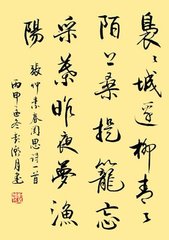 裊々城邊柳青々
陌上桑提籠忘
采葉昨夜夢漁
陽
張仲素春閨思詩一首
丙申冬月